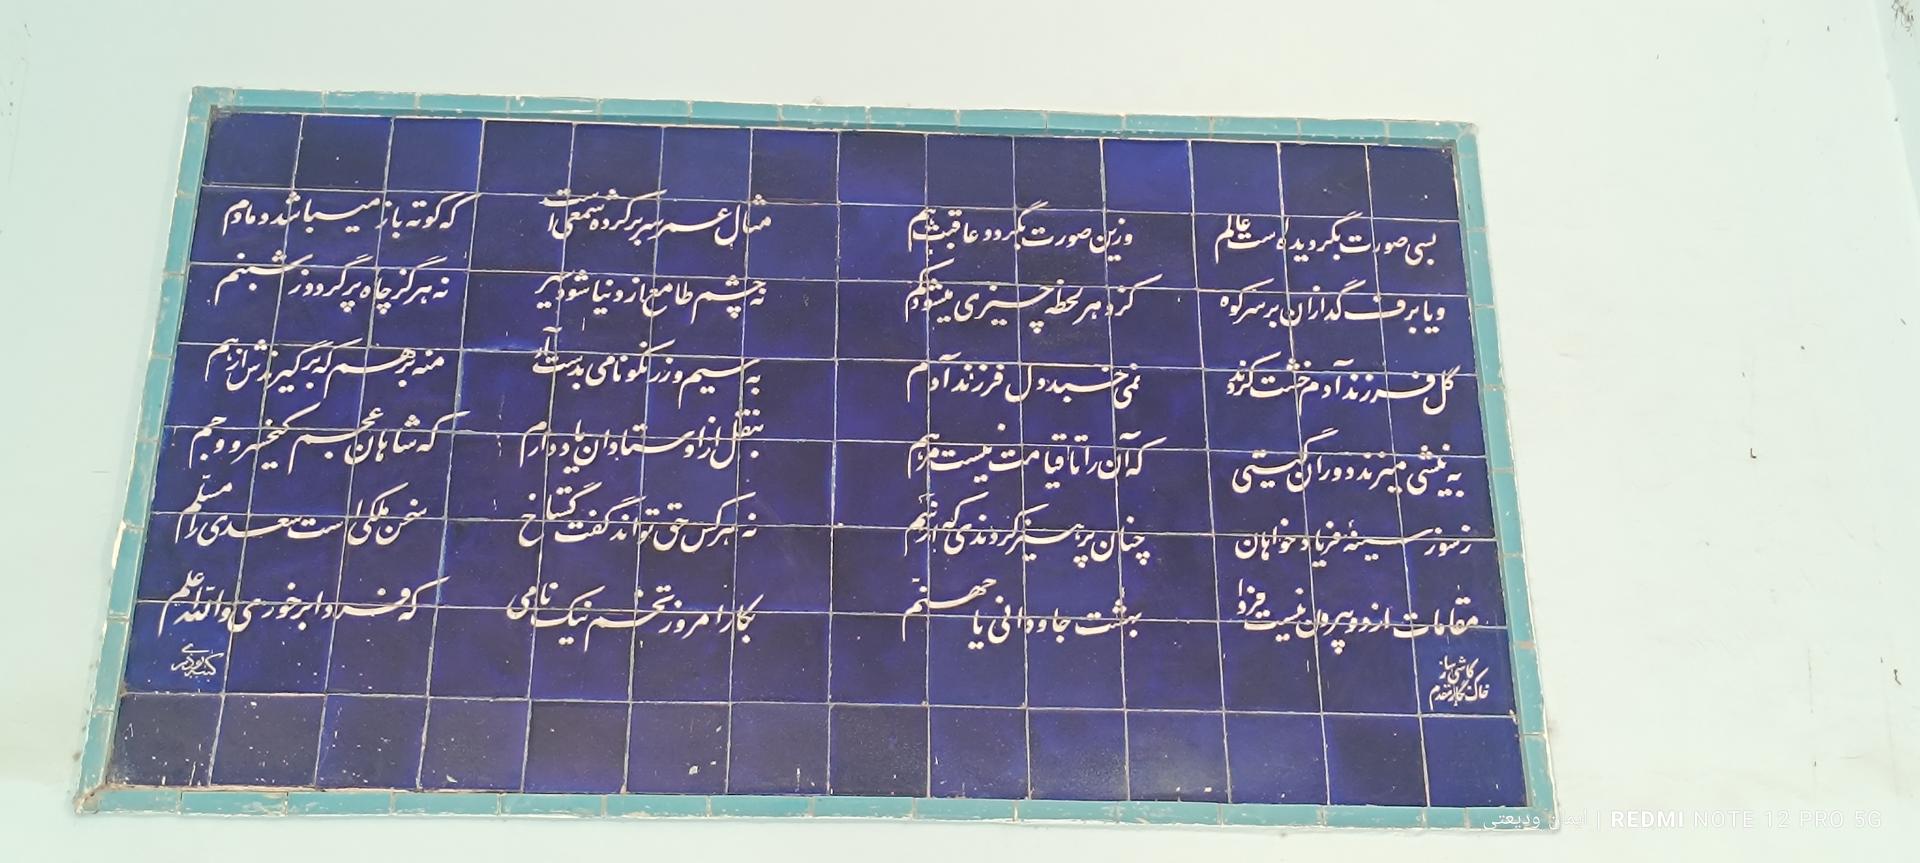 بسی صورت بگردیده است عالم وزین صورت بگردد عاقبت هم مثال عمر سر بر کرده شمعی است که کوته باز میباشد دمادم
و یا برف گدازان بر سر کوه کزو هر لحظه چیزی میشود کم نه چشم طامع از دنیا شود سیر نه هرگز چاه پر گردد ز شبنم
گل فرزند آدم خشت کردند نمی خسبد دل فرزند آدم به سیم و زر نکونامی بدست آر منه بر هم که برگیرندش از هم
به نیشی میزند دوران گیتی که آن را تا قیامت نیست مرهم بنقل از اوستادان یاد دارم که شاهان عجم کیخسرو و جم
ز سوز سینهٔ فریاد خواهان چنان پرهیز کردندی که از سم نه هر کس حق تواند گفت گستاخ سخن ملکی است سعدی را مسلّم
مقامات از دو بیرون نیست فردا بهشت جاودانی یا جهنم بکار امروز تخم نیک نامی که فردا بر خوری والله اعلم
کاشی ساز
خاک نگار مقدم
ایمان ودیعتی | REDMI NOTE 12 PRO 5G